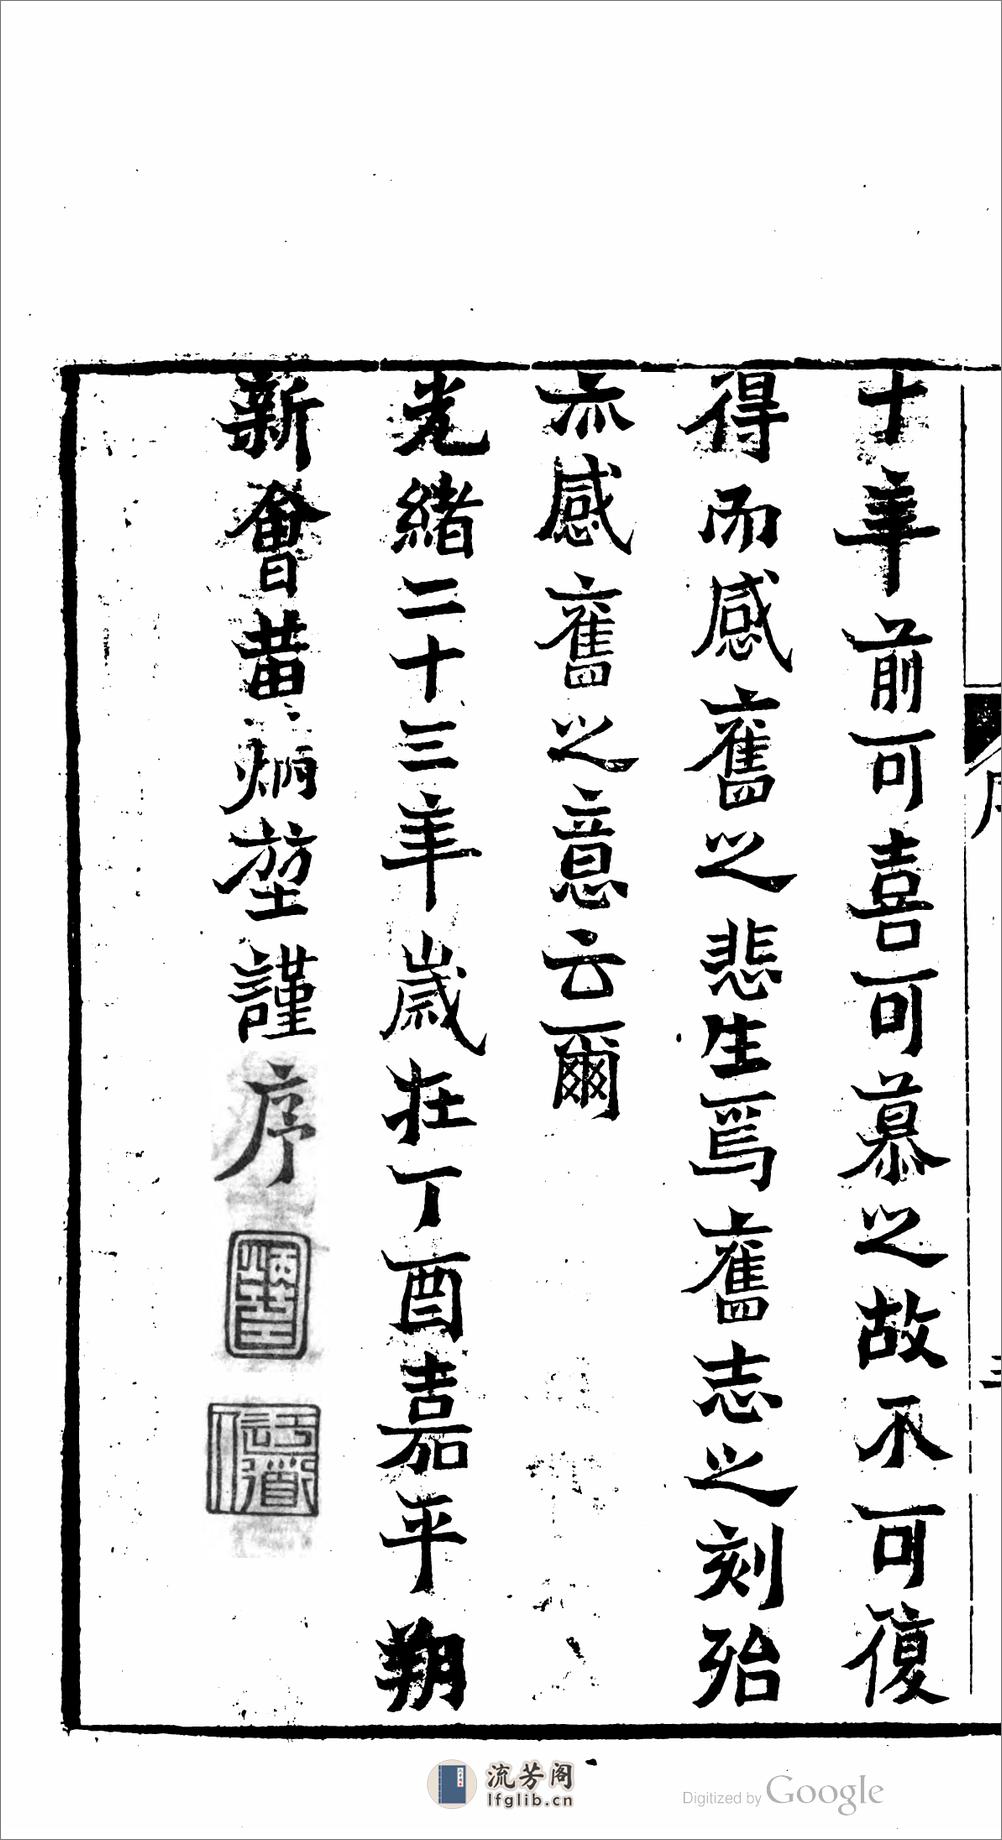 十年前可喜可慕之故不可復
得而感舊之悲生焉舊志之刻殆
亦感舊之意云爾
光緒二十三年歲在丁酉嘉平朔
新會黃炳堃謹序
流芳阁
lfglib.cn
Digitized by Google